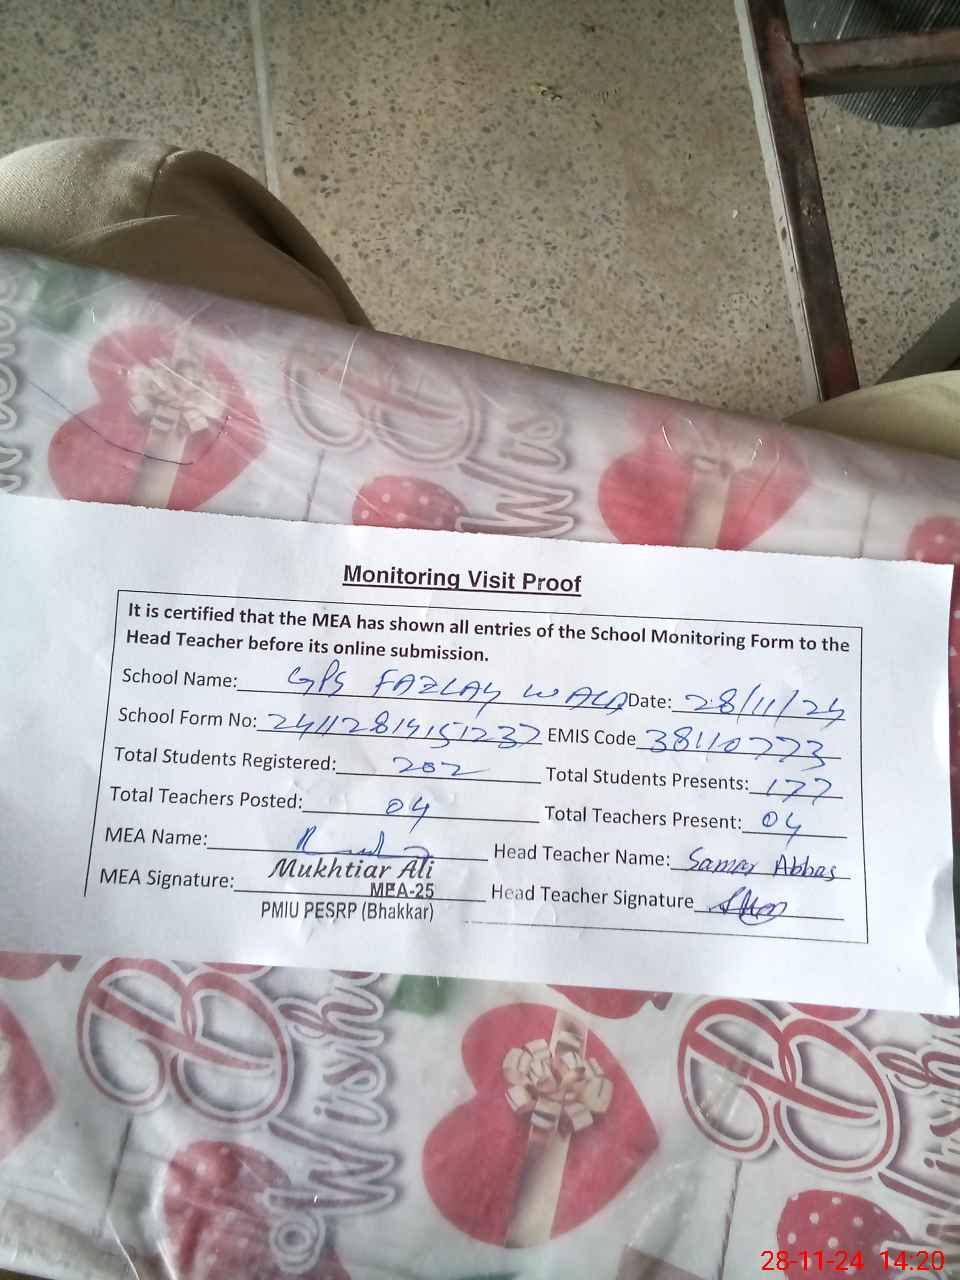 Best Wishes
Monitoring Visit Proof
It is certified that the MEA has shown all entries of the School Monitoring Form to the
Head Teacher before its online submission.
School Name: GPS FAZLAY WALA Date: 28/11/24
School Form No: 24112814151237 EMIS Code 38110773
Total Students Registered: 202 Total Students Presents: 177
Total Teachers Posted: 04 Total Teachers Present: 04
MEA Name: Head Teacher Name: Samar Abbas
Mukhtiar Ali
MEA Signature: MEA-25 Head Teacher Signature
PMIU PESRP (Bhakkar)
Be
Wish
Be
Wish
28-11-24 14:20